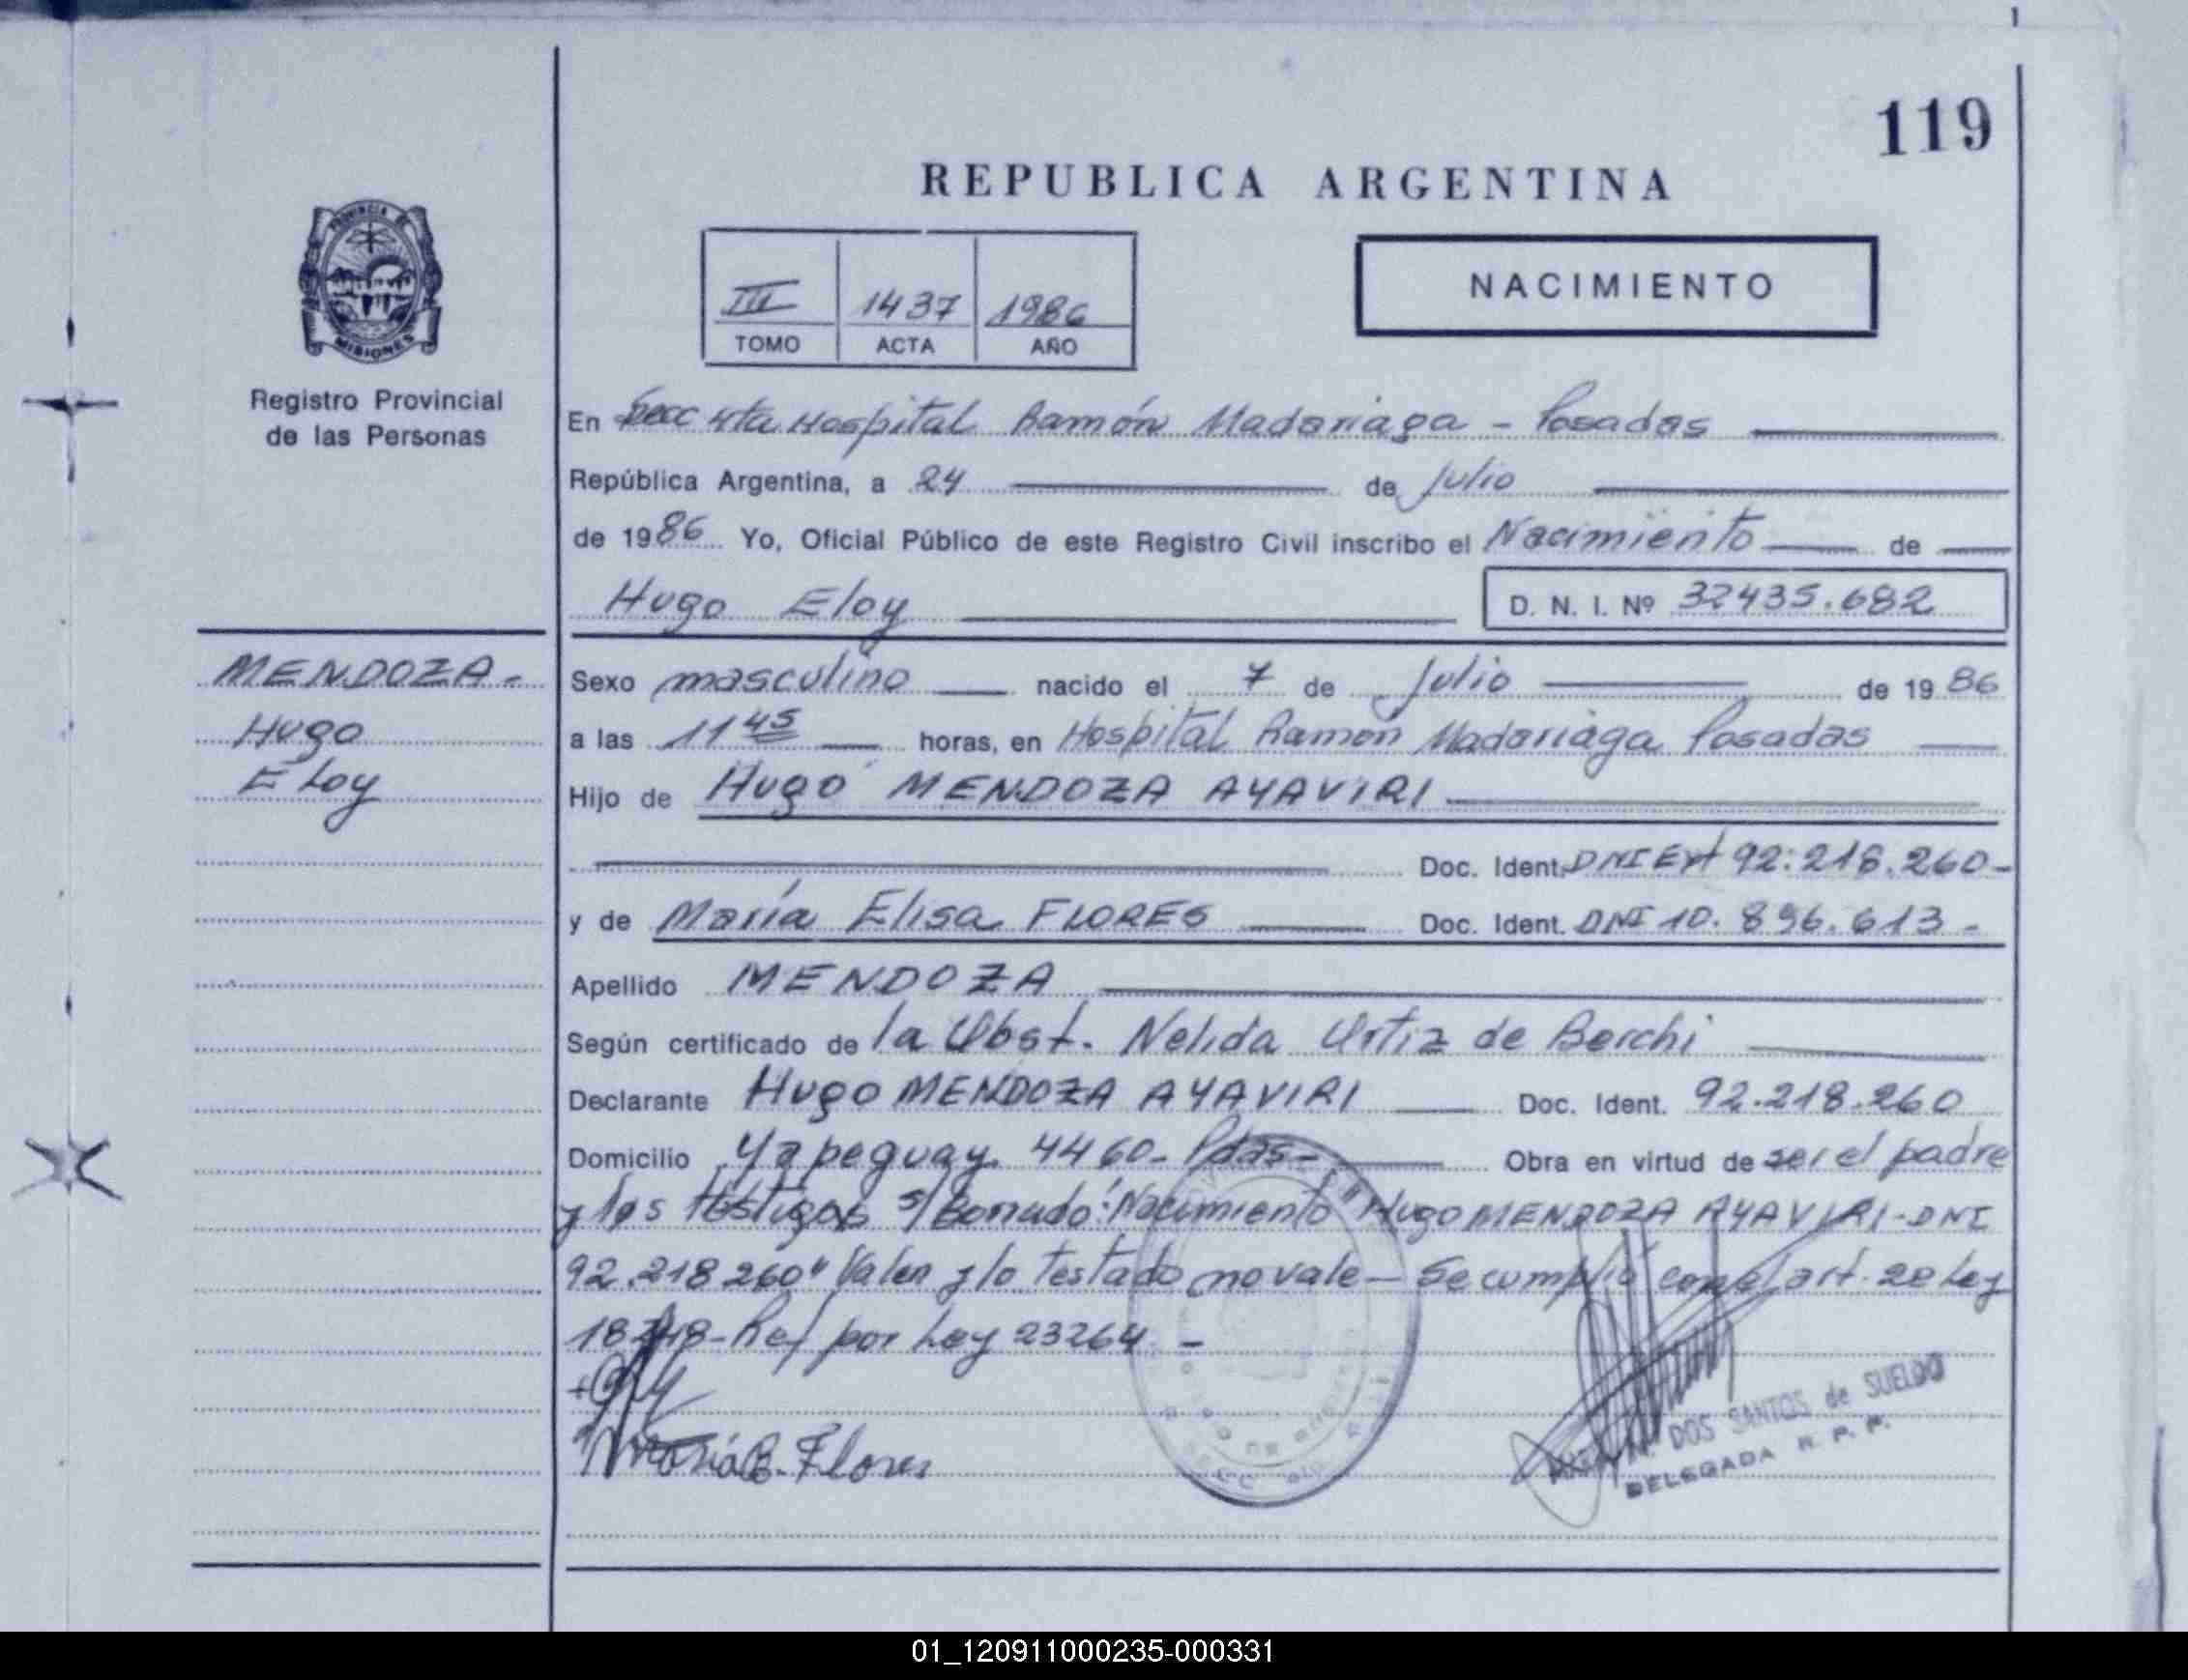 119
REPUBLICA ARGENTINA
PROVINCIA DE
MISIONES
III 1437 1986
TOMO ACTA AÑO
NACIMIENTO
Registro Provincial
de las Personas
En Secc 4ta Hospital Ramón Madariaga - Posadas
República Argentina, a 24 de Julio
de 1986 Yo, Oficial Público de este Registro Civil inscribo el Nacimiento de
Hugo Eloy D. N. I. Nº 32435.682
MENDOZA-
Hugo
Eloy
Sexo masculino nacido el 7 de Julio de 1986
a las 11 45 horas, en Hospital Ramón Madariaga Posadas
Hijo de Hugo MENDOZA AYAVIRI
Doc. Ident. DNI Ext 92.218.260-
y de María Elisa FLORES Doc. Ident. DNI 10.896.613-
Apellido MENDOZA
Según certificado de la Obst. Nelida Ortiz de Berchi
Declarante Hugo MENDOZA AYAVIRI Doc. Ident. 92.218.260
Domicilio Yapeguay 4460- Pdas- Obra en virtud de ser el padre
y los testigos s/ borrado: "Nacimiento Hugo MENDOZA AYAVIRI-DNI
92.218.260" Valen y lo testado no vale- Se cumplió con el art. 2º Ley
18248-Ref por Ley 23264.-
María E. Flores
DOS SANTOS de SUELDO
DELEGADA R. P. P.
01_120911000235-000331